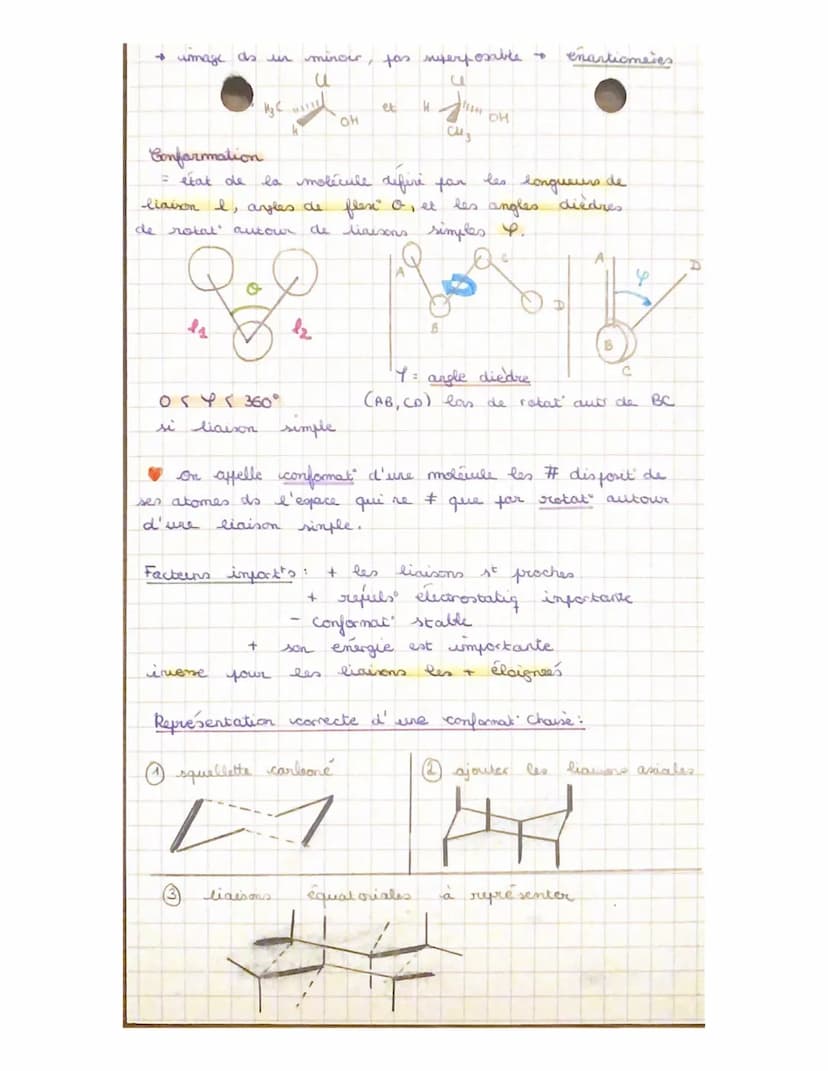 → image ds un miroir, pas superposable → énantiomères
Cl Cl
H₃C et H
H OH CH₃ OH
Conformation
= état de la molécule défini par les longueurs de
liaison l, angles de flex° θ, et les angles dièdres
de rotat° autour de liaisons simples φ.
θ A C A φ D
l₁ l₂ B D B C
φ = angle dièdre
0 < φ < 360° (AB, CD) lors de rotat° autr de BC
si liaison simple
♥ On appelle conformat° d'une molécule les ≠ disposit° de
ses atomes ds l'espace qui ne ≠ que par rotat° autour
d'une liaison simple.
Facteurs import^ts : + les liaisons st proches
+ répuls° électrostatiq importante
- conformat° stable
+ son énergie est importante
inverse pour les liaisons les + éloignées
Représentation correcte d'une conformat° Chaise :
① squellette carboné ② ajouter les liaisons axiales
③ liaisons équatoriales à représenter